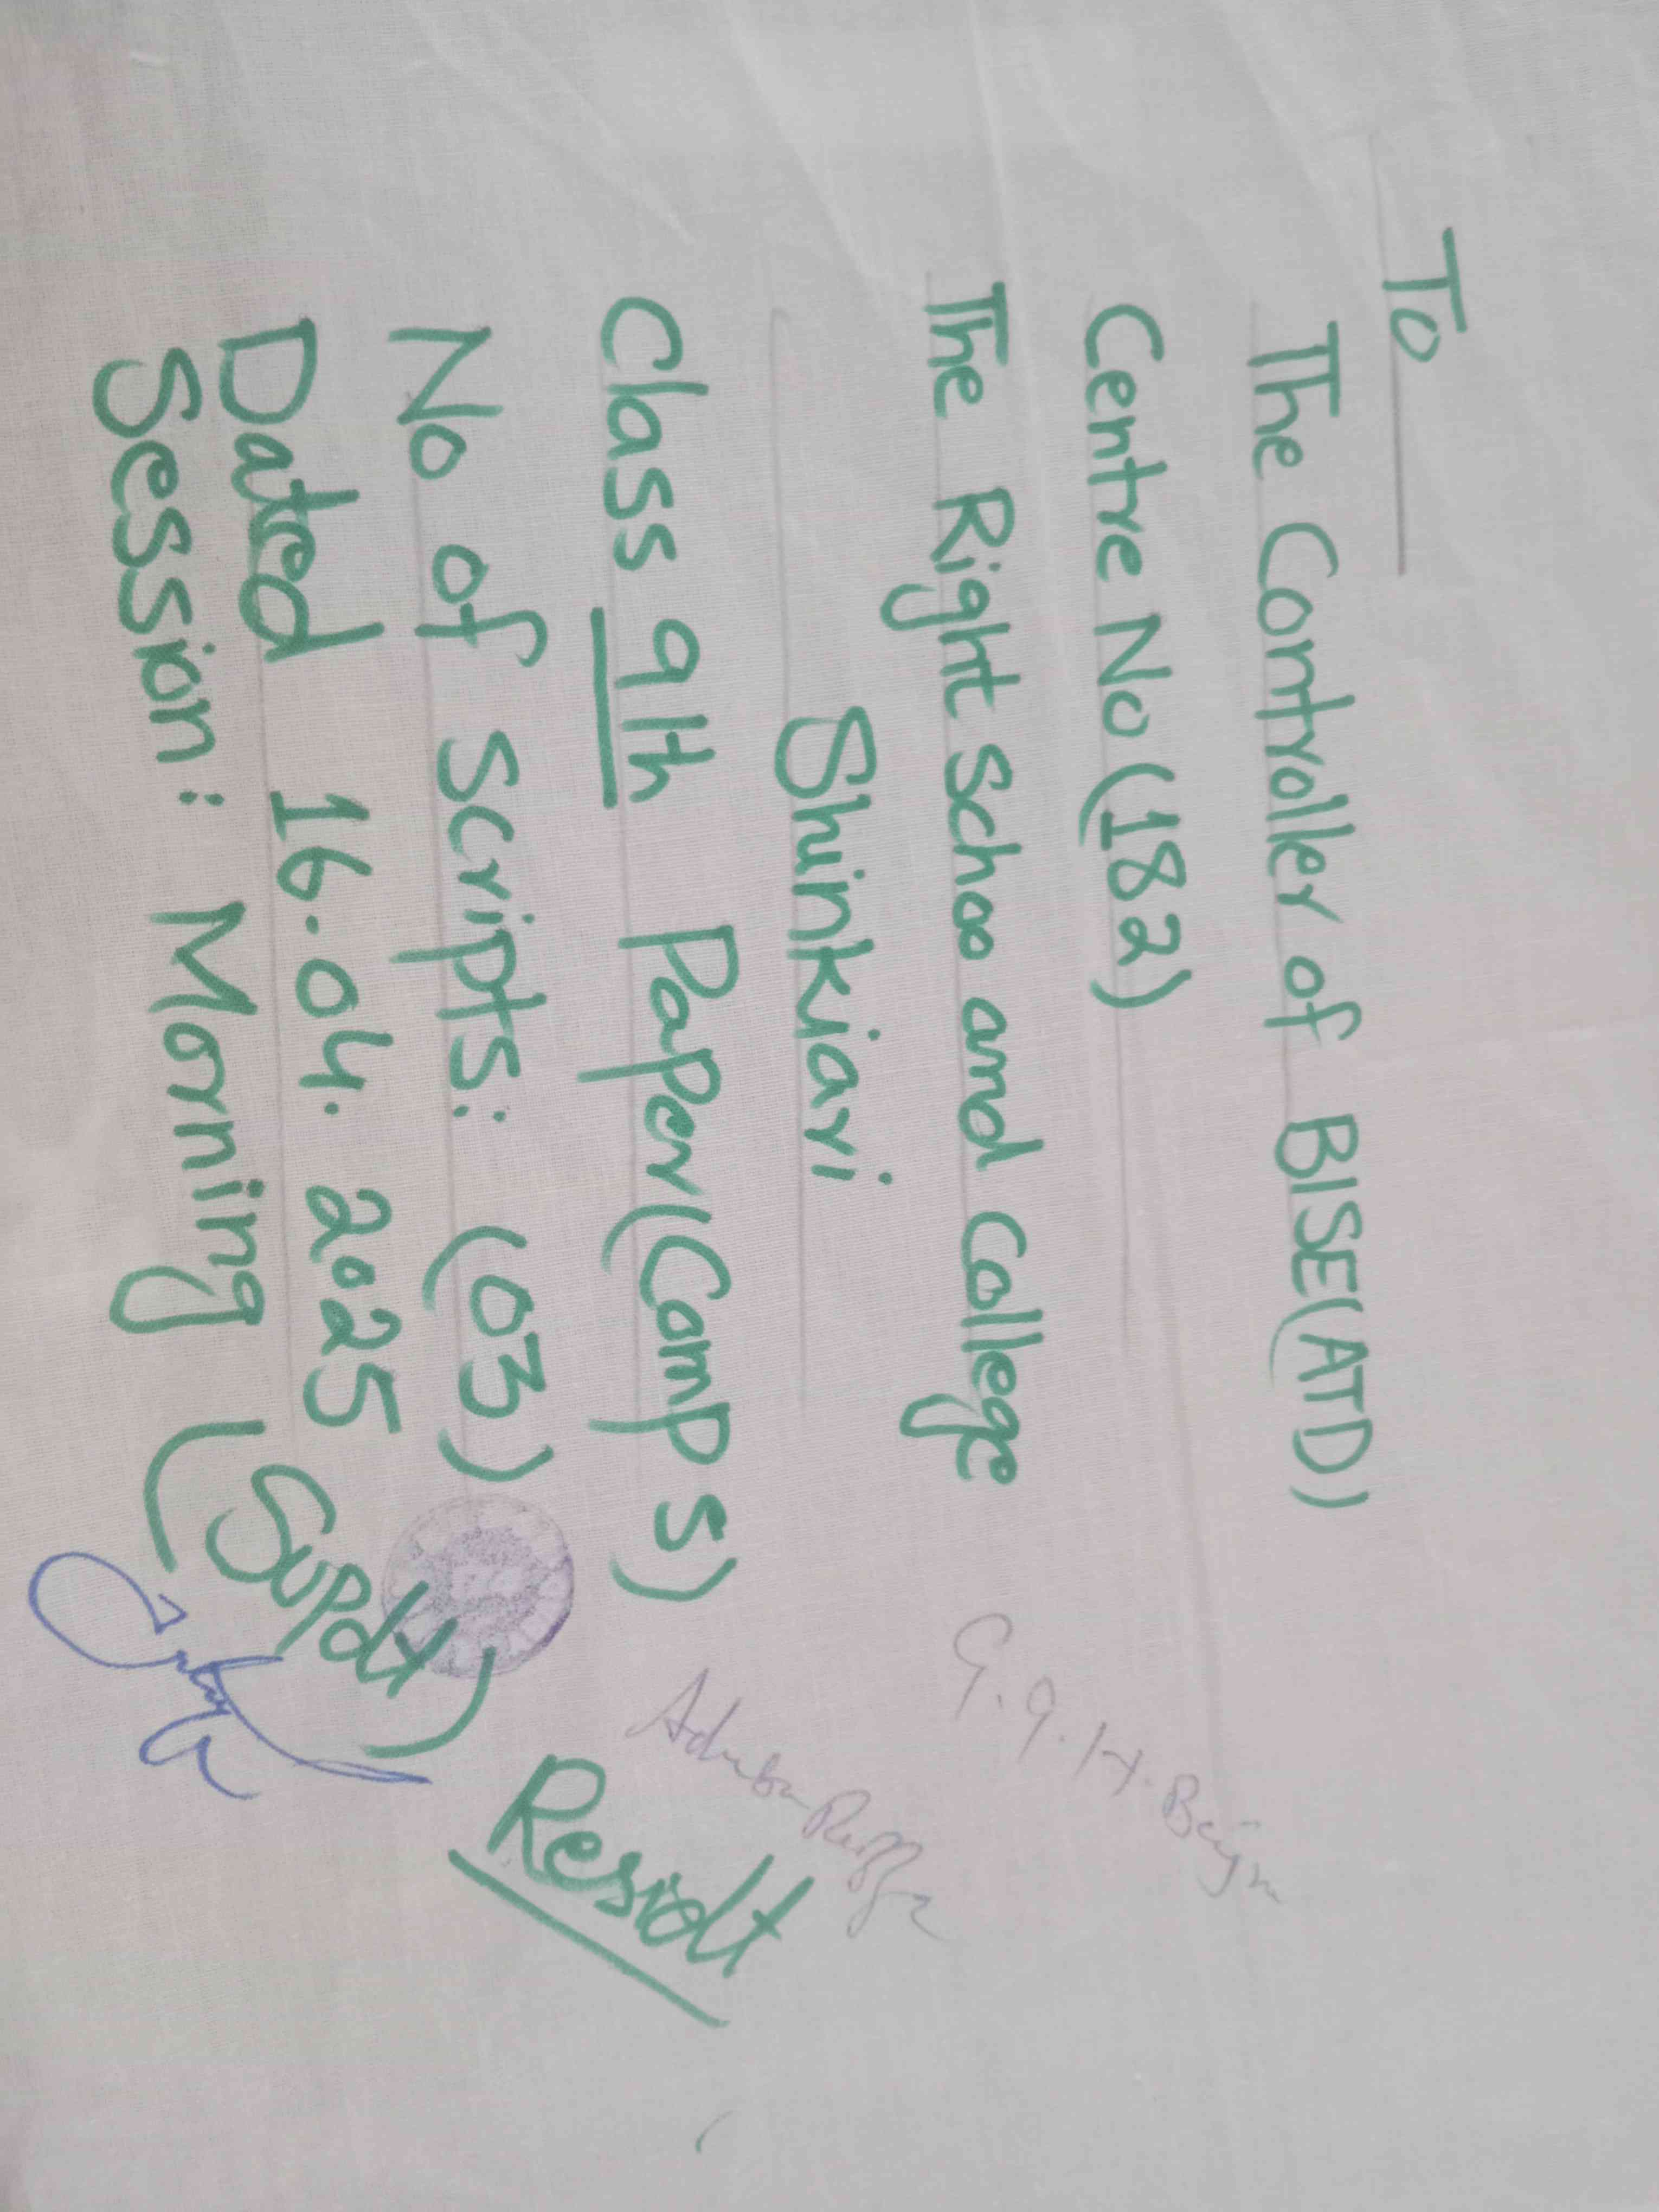 To
The Controller of BISE(ATD)
Centre No (182)
The Right Schoo and College
Shinkiari
Class 9th Paper (Comp S)
No of Scripts: (03)
Dated 16.04.2025
Session: Morning
(Supdt)
Resiolt